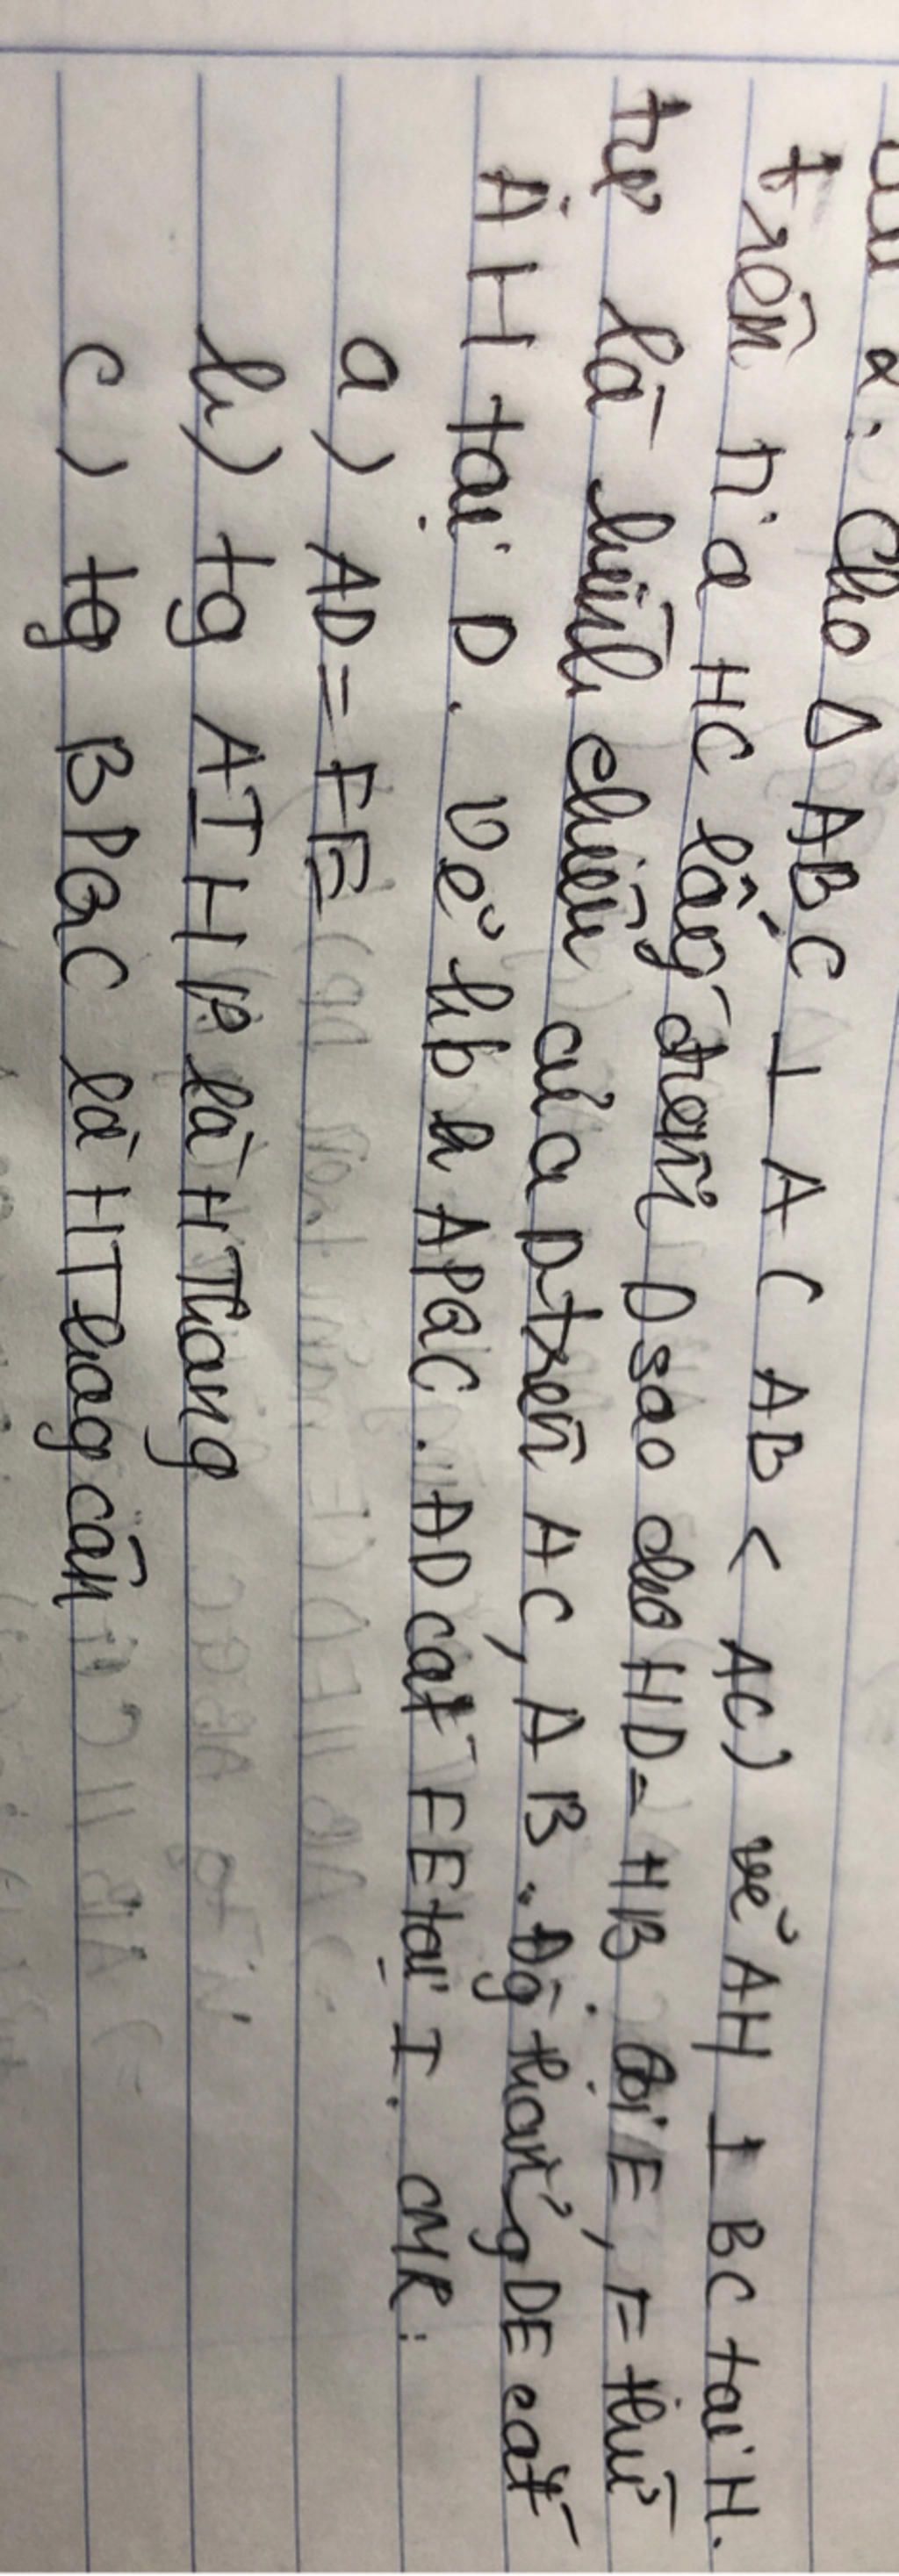 2: Cho Δ ABC ⊥ A ( AB < AC) vẽ AH ⊥ BC tại H.
trên tia HC lấy điểm D sao cho HD = HB. Gọi E, F thứ
tự là hình chiếu của D trên AC, AB. Đg thẳng DE cắt
AH tại P. vẽ hbh APQC. AD cắt FE tại I. CMR:
a) AD = FE
b) tg AIHP là H Thang
c) tg BPQC là HThag cân